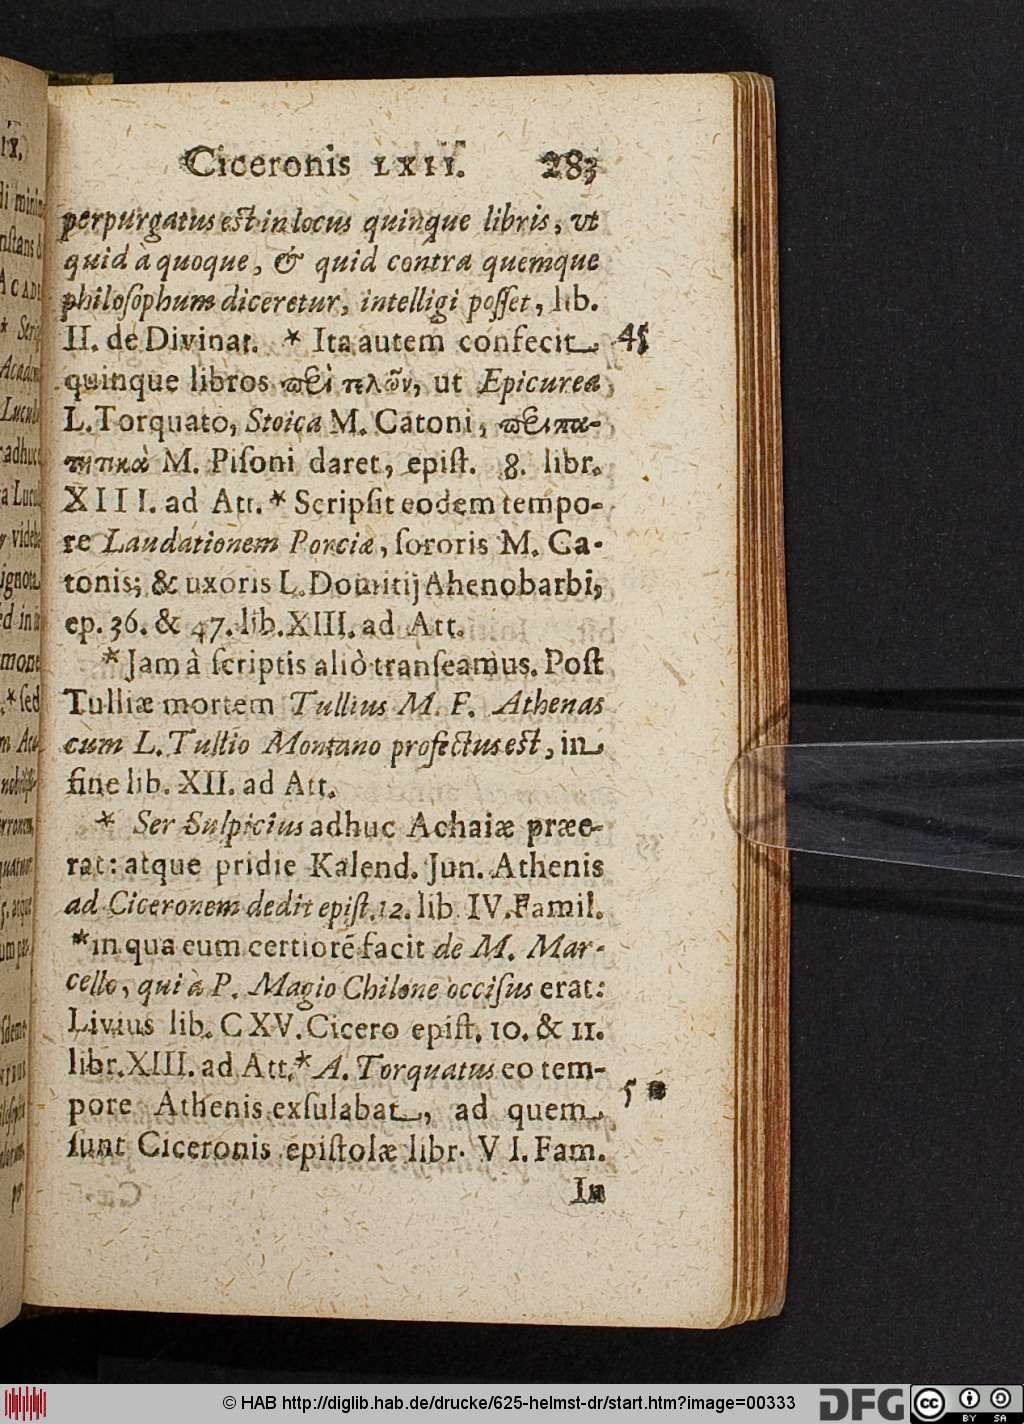 Ciceronis LXII. 283
perpurgatus est in locus quinque libris, vt
quid à quoque, & quid contra quemque
philoſophum diceretur, intelligi poſſet, lib.
II. de Divinat. * Ita autem confecit 45
quinque libros περὶ τελῶν, ut Epicurea
L. Torquato, Stoica M. Catoni, περιπα-
τητικὰ M. Piſoni daret, epiſt. 8. libr.
XIII. ad Att. * Scripſit eodem tempo-
re Laudationem Porciæ, ſororis M. Ca-
tonis; & uxoris L. Domitij Ahenobarbi,
ep. 36. & 47. lib. XIII. ad Att.
* Jam à ſcriptis aliò tranſeamus. Poſt
Tulliæ mortem Tullius M. F. Athenas
cum L. Tullio Montano profectus est, in
fine lib. XII. ad Att.
* Ser Sulpicius adhuc Achaiæ præe-
rat: atque pridie Kalend. Jun. Athenis
ad Ciceronem dedit epiſt. 12. lib IV. Famil.
* in qua eum certiorē facit de M. Mar-
cello, qui à P. Magio Chilone occiſus erat:
Livius lib. CXV. Cicero epiſt. 10. & 11.
libr. XIII. ad Att. * A. Torquatus eo tem-
pore Athenis exſulabat, ad quem 5
ſunt Ciceronis epiſtolæ libr. VI. Fam.
In
© HAB http://diglib.hab.de/drucke/625-helmst-dr/start.htm?image=00333
DFG
cc
BY SA